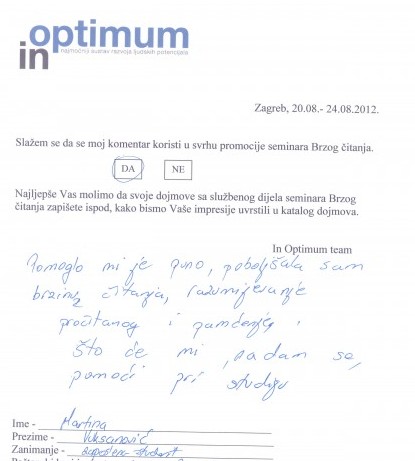 in optimum
najmoćniji sustav razvoja ljudskih potencijala
Zagreb, 20.08.- 24.08.2012.
Slažem se da se moj komentar koristi u svrhu promocije seminara Brzog čitanja.
DA NE
Najljepše Vas molimo da svoje dojmove sa službenog dijela seminara Brzog
čitanja zapišete ispod, kako bismo Vaše impresije uvrstili u katalog dojmova.
In Optimum team
Pomoglo mi je puno, poboljšala sam
brzinu čitanja, razumijevanje
pročitanog i pamćenje,
što će mi, nadam se,
pomoći pri studiju
Ime - Martina
Prezime - Vuksanović
Zanimanje - zaposlena student